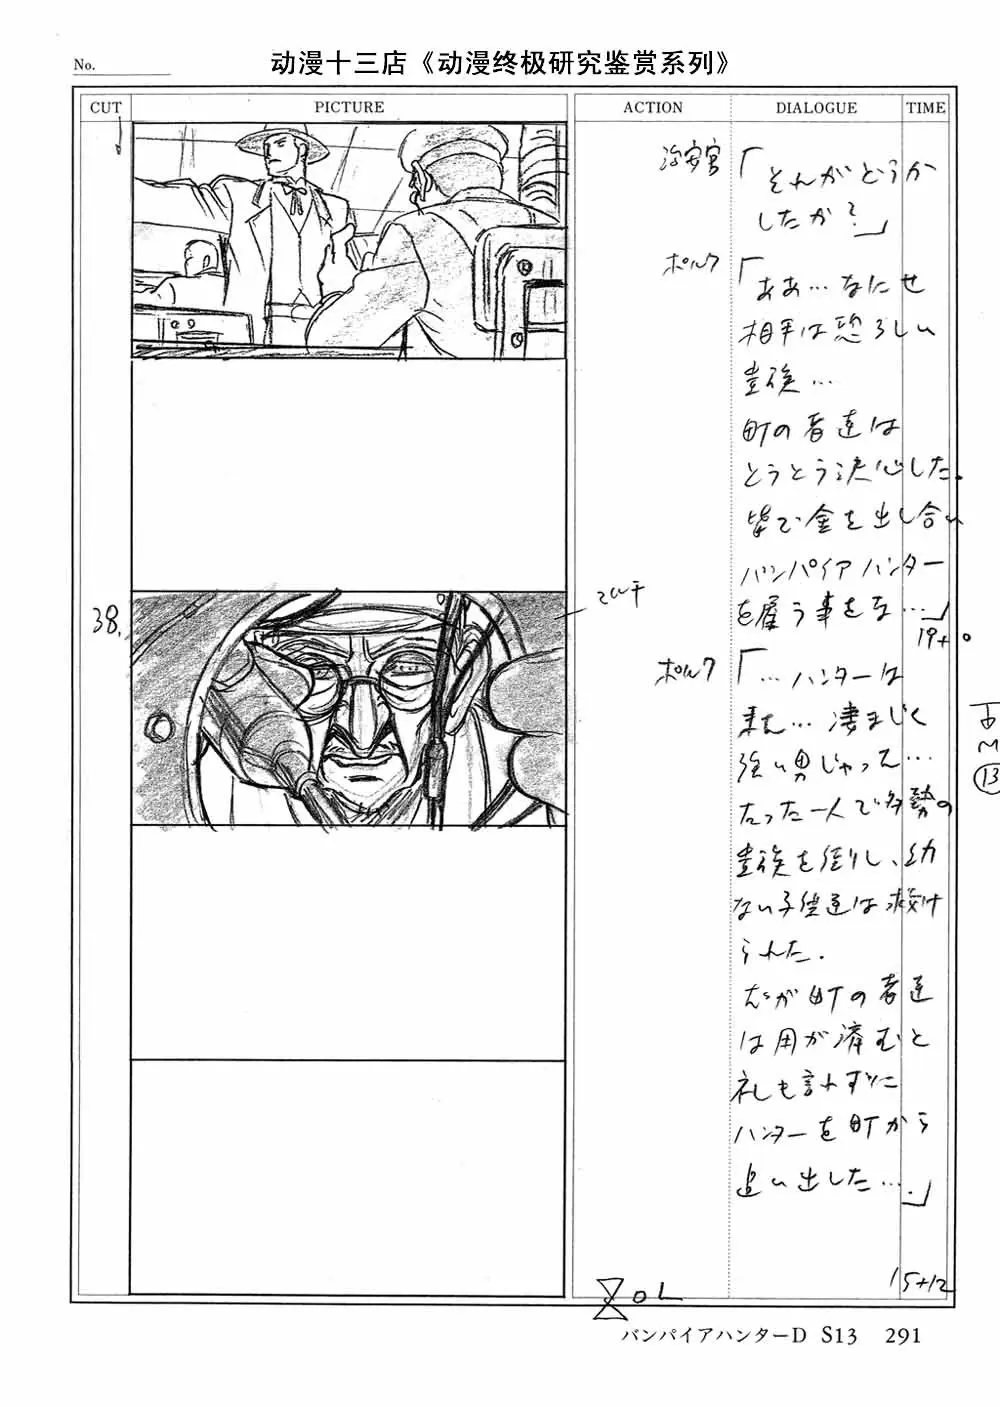 No.
动漫十三店《动漫终极研究鉴赏系列》
CUT
PICTURE
ACTION
DIALOGUE
TIME
治安官
「それがどうか
したか?」
ポルク
「ああ…なにせ
相手は恐ろしい
貴族…
町の者達は
とうとう決心した。
皆で金を出し合い
バンパイアハンター
を雇う事をな…」
19+0
38.
マルチ
ポルク
「…ハンターは
来た…凄まじく
強い男じゃった…
たった一人で多勢の
貴族を倒し、幼
ない子供達は救け
られた.
だが町の者達
は用が済むと
礼も言わずに
ハンターを町から
追い出した….」
13
15+12
OL
バンパイアハンターD S13 291